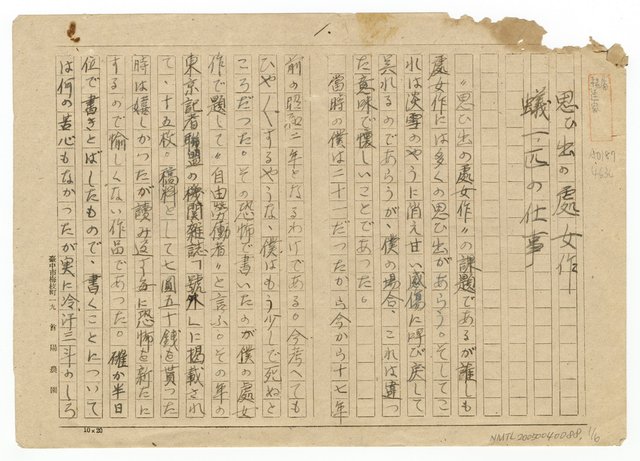 思ひ出の處女作
蟻一匹の仕事
"思ひ出の處女作"の課題であるが誰しも
處女作には多くの思ひ出があらう。そしてこ
れは淡雪のやうに消え甘い感傷に呼び戻して
呉れるのであらうが、僕の場合、これは違つ
た意味で懐しいことであつた。
當時の僕は二十一だつたから今から十七年
前の昭和二年となるわけである。今考へても
ひやひやするやうな、僕はもう少しで死ぬと
ころだつた。その恐怖で書いたのが僕の處女
作で題して"自由勞働者"と言ふ。その年の
東京記者聯盟の機關雜誌「號外」に掲載され
て、十五枚。稿料として七圓五十錢を貰つた
時は嬉しかつたが讀み返す毎に恐怖を新たに
するので愉しくない作品であつた。確か半日
位で書きとばしたもので、書くことについて
は何の苦心もなかつたが実に冷汗三斗のしろ
臺中市梅枝町一九 首陽農園
10×20
NMTL20050040088, 1/6